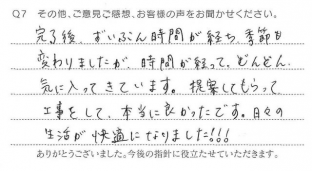 Q7 その他、ご意見ご感想、お客様の声をお聞かせください。
完了後、ずいぶん時間が経ち、季節も
変わりましたが、時間が経って、どんどん
気に入ってきています。提案してもらって
工事をして、本当に良かったです。日々の
生活が快適になりました!!!
ありがとうございました。今後の指針に役立たせていただきます。